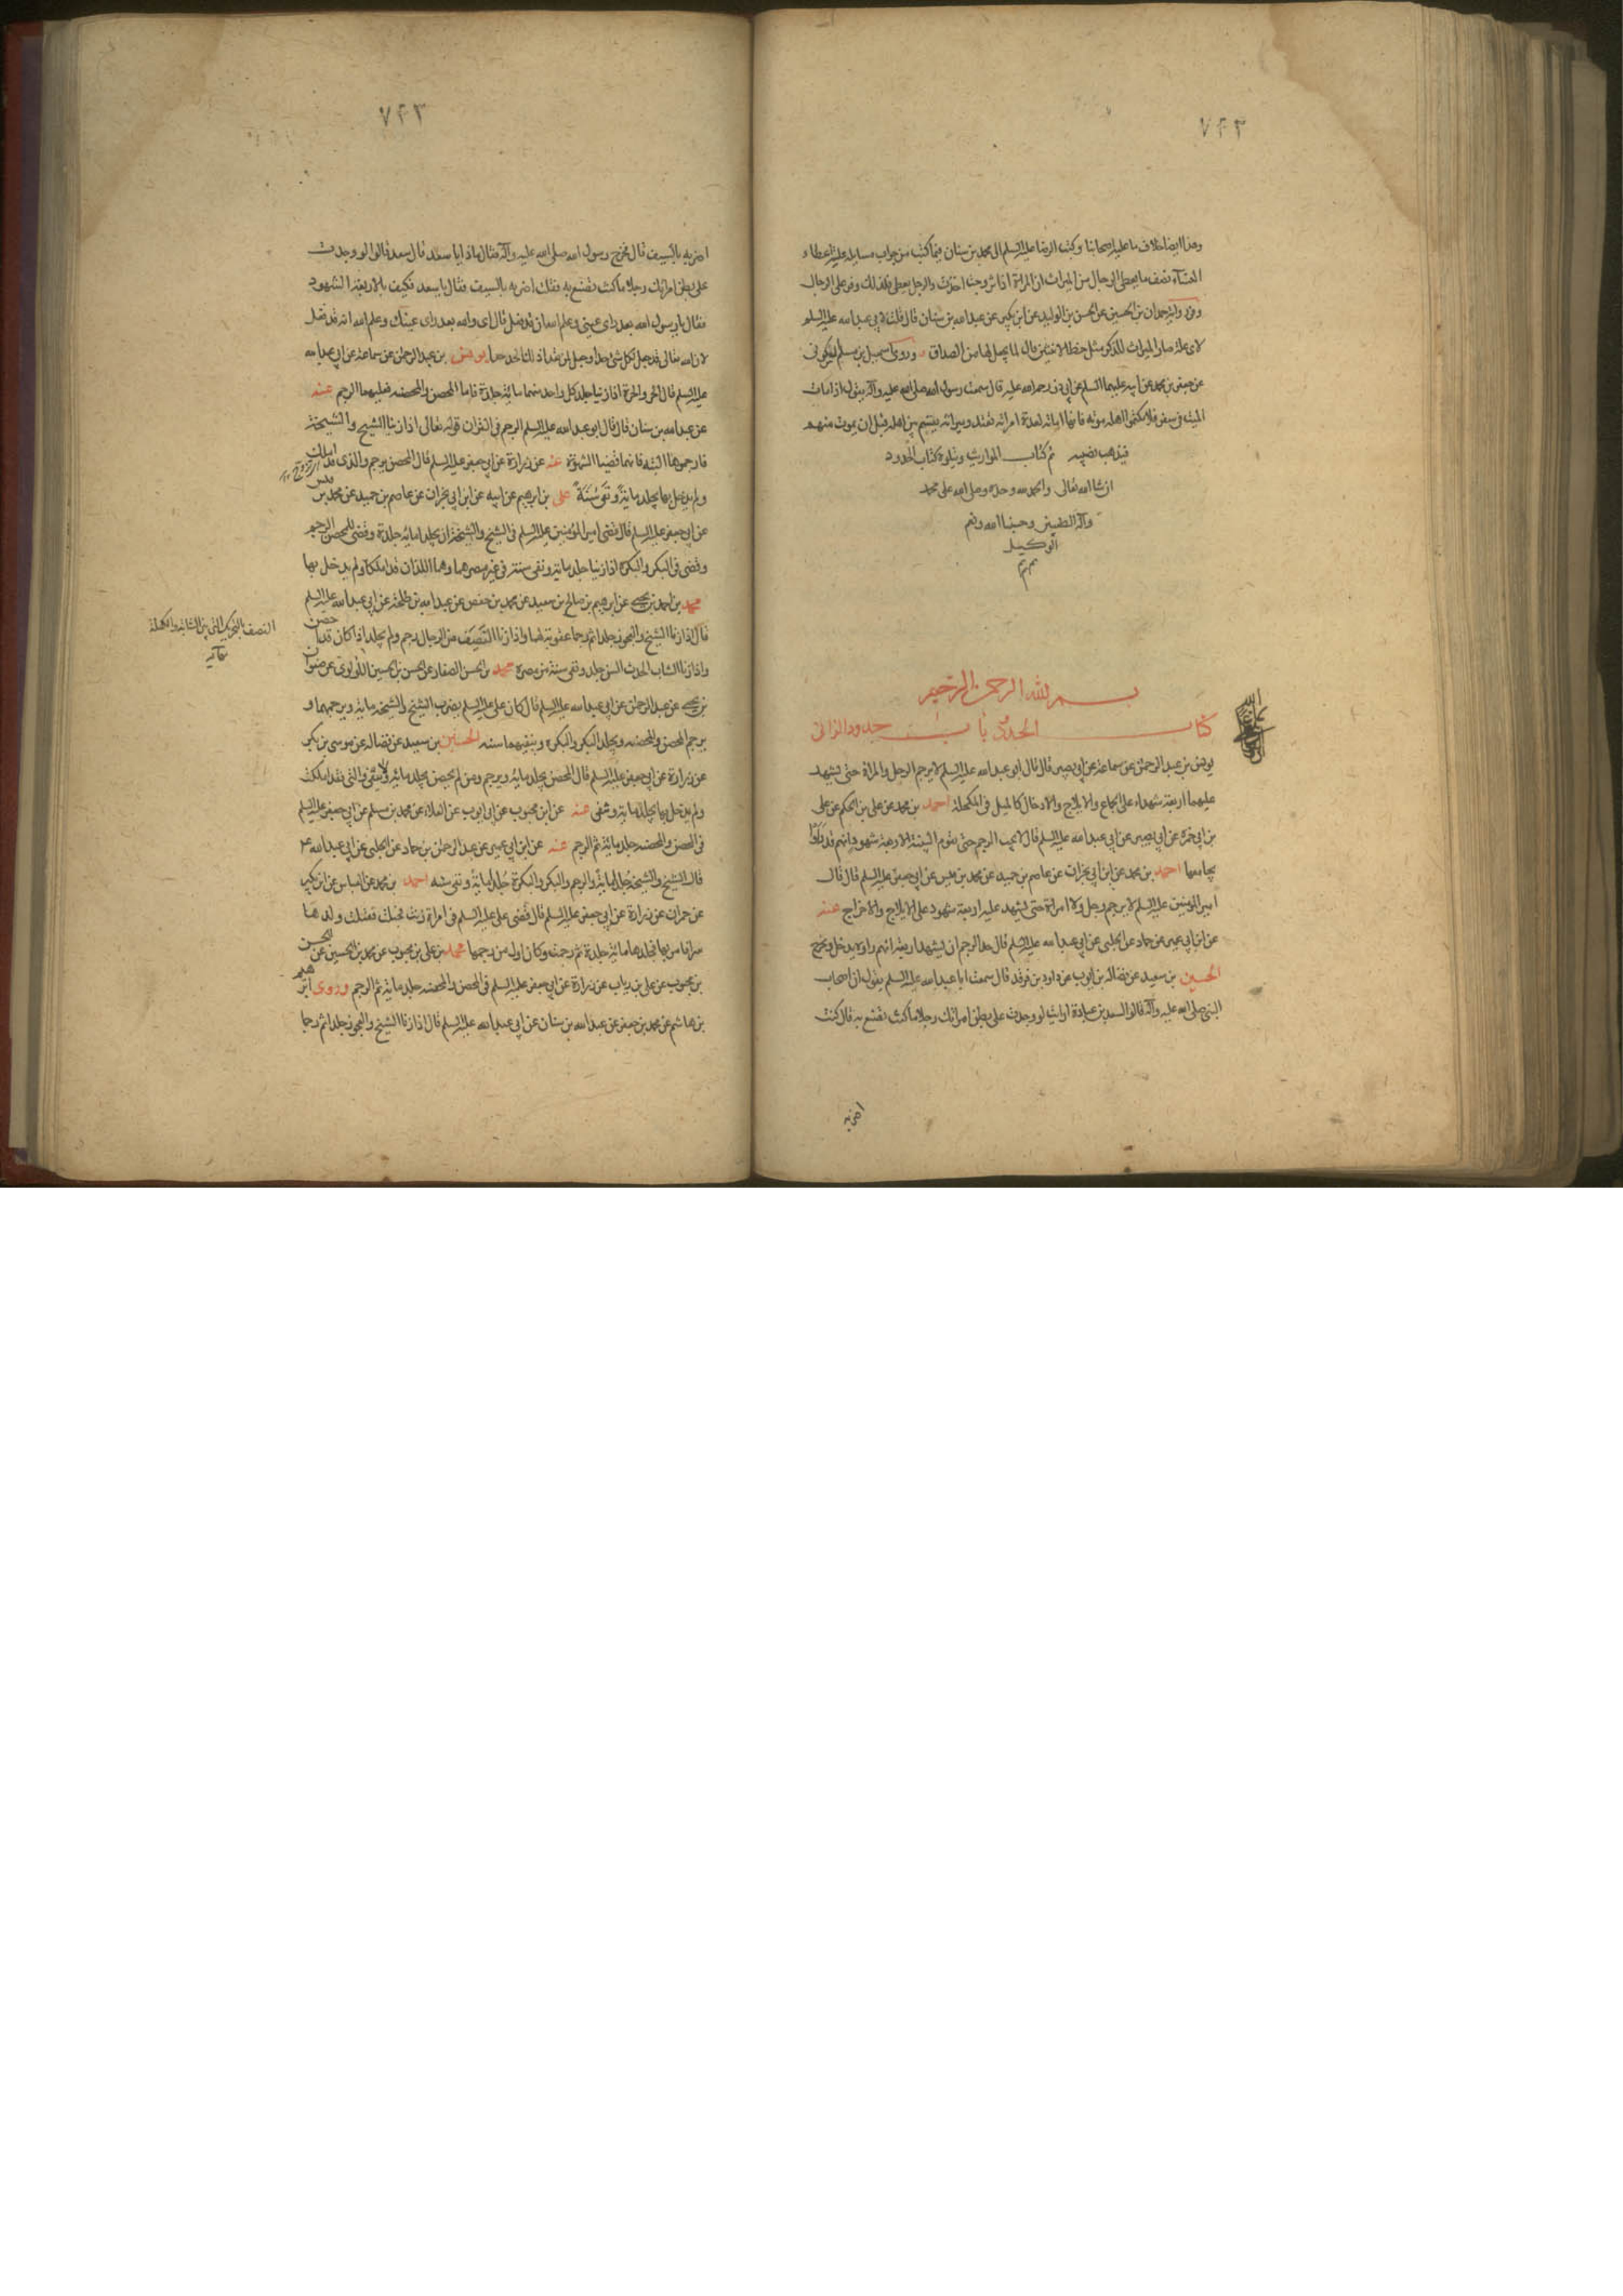 ۷۴۲
وهذا ايضا خلاف ما عليه اصحابنا وكتب الرضا عليه السلم الى محمد بن سنان فيما كتب من جواب مسايله علة اعطاء
النسآء نصف ما يعطى الرجال من الميراث ان المراة اذا تزوجت اخذت والرجل يعطى فلذلك وفر على الرجال
وفي رواية حمدان بن الحسين عن الحسن بن الوليد عن ابن بكير عن عبد الله بن سنان قال قلت لابي عبد الله عليه السلم
لاى علة صار الميراث للذكر مثل حظ الانثيين قال لما يجعل لها من الصداق وروى اسمعيل بن مسلم السكونى
عن جعفر بن محمد عن ابيه عليهما السلم عن ابي ذر رحمة الله عليه قال سمعت رسول الله صلى الله عليه وآله يقول اذا مات
الميت فى سفر فلا تكتموا اهله موته فانها امانة لعدة امراته تعتد وميراثه يقسم بين اهله قبل ان يموت منهم
فيذهب نصيبه تم كتاب المواريث ويتلوه كتاب الحدود
ان شا الله تعالى والحمد لله وحده وصلى الله على محمد
وآله الطيبين وحسبنا الله ونعم
الوكيل
بسم الله الرحمن الرحيم
كتاب الحدود باب حدود الزانى
يونس بن عبد الرحمن عن سماعة عن ابي بصير قال قال ابو عبد الله عليه السلم لا يرجم الرجل والمراة حتى يشهد
عليهما اربعة شهداء على الجماع والايلاج والادخال كالميل فى المكحلة احمد بن محمد عن على بن الحكم عن على
بن ابي حمزة عن ابي بصير عن ابي عبد الله عليه السلم قال لا يجب الرجم حتى تقوم البينة الاربعة شهود انهم قد راوه
يجامعها احمد بن محمد عن ابن ابي نجران عن عاصم بن حميد عن محمد بن قيس عن ابي جعفر عليه السلم قال قال
امير المومنين عليه السلم لا يرجم رجل ولا امراة حتى يشهد عليه اربعة شهود على الايلاج والاخراج عنه
عن ابن ابي عمير عن حماد عن الحلبى عن ابي عبد الله عليه السلم قال حد الرجم ان يشهد اربعة انهم راوه يدخل ويخرج
الحسين بن سعيد عن فضالة بن ايوب عن داود بن فرقد قال سمعت ابا عبد الله عليه السلم يقول ان اصحاب
النبى صلى الله عليه وآله قالوا لسعد بن عبادة ارايت لو وجدت على بطن امراتك رجلا ما كنت تصنع به قال كنت
اضربه
۷۴۳
اضربه بالسيف قال فخرج رسول الله صلى الله عليه وآله فقال ماذا يا سعد قال سعد قالوا لو وجدت
على بطن امراتك رجلا ما كنت تصنع به فقلت اضربه بالسيف فقال يا سعد فكيف بالاربعة الشهود
فقال يا رسول الله بعد راى عينى وعلم الله ان قد فعل قال اى والله بعد راى عينك وعلم الله انه قد فعل
لان الله تعالى قد جعل لكل شئ حدا وجعل لمن تعدا ذلك الحد حدا يونس بن عبد الرحمن عن سماعة عن ابي عبد الله
عليه السلم قال الحر والحرة اذا زنيا جلد كل واحد منهما مائة جلدة فاما المحصن والمحصنة فعليهما الرجم عنه
عن عبد الله بن سنان قال قال ابو عبد الله عليه السلم الرجم فى القران قوله تعالى اذا زنا الشيخ والشيخة
فارجموهما البتة فانهما قضيا الشهوة عنه عن زرارة عن ابي جعفر عليه السلم قال المحصن يرجم والذى قد املك
ولم يدخل بها يجلد ماية ونفى سنة على بن ابرهيم عن ابيه عن ابن ابي نجران عن عاصم بن حميد عن محمد بن قيس
عن ابي جعفر عليه السلم قال قضى امير المومنين عليه السلم فى الشيخ والشيخة ان يجلدا مائة جلدة وقضى للمحصن الرجم
وقضى فى البكر والبكرة اذا زنيا جلد ماية ونفى سنة فى غير مصرهما وهما اللذان قد املكا ولم يدخل بها
محمد بن احمد بن يحيى عن ابرهيم بن صالح بن سعيد عن محمد بن حفص عن عبد الله بن طلحة عن ابي عبد الله عليه السلم
قال اذا زنا الشيخ والعجوز جلدا ثم رجما عقوبة لهما واذا زنا النصف من الرجال رجم ولم يجلد اذا كان قد احصن
واذا زنا الشاب الحدث السن جلد ونفى سنة من مصره محمد بن الحسن الصفار عن الحسن بن الحسين اللؤلؤى عن صفوان
بن يحيى عن عبد الرحمن عن ابي عبد الله عليه السلم قال كان على عليه السلم يضرب الشيخ والشيخة ماية ويرجمهما و
يرجم المحصن والمحصنه ويجلد البكر والبكره وينفيهما سنه الحسين بن سعيد عن فضالة عن موسى بن بكر
عن زرارة عن ابي جعفر عليه السلم قال المحصن يجلد ماية ويرجم ومن لم يحصن يجلد ماية ولا ينفى والتى قد املكت
ولم يدخل بها يجلد ماية وينفى عنه عن ابن محبوب عن ابي ايوب عن العلاء عن محمد بن مسلم عن ابي جعفر عليه السلم
فى المحصن والمحصنه جلد مائة ثم الرجم عنه عن ابن ابي عمير عن عبد الرحمن بن حماد عن الحلبى عن ابي عبد الله ع
قال الشيخ والشيخة جلد ماية والرجم والبكر والبكرة جلد ماية ونفى سنه احمد بن محمد عن العباس عن ابن بكير
عن حمران عن زرارة عن ابي جعفر عليه السلم قال قضى على عليه السلم فى امراة زنت فحبلت فقتلت ولدها
سرا فامر بها فجلدها مائة جلدة ثم رجمت وكان اول من رجمها محمد بن على بن محبوب عن محمد بن الحسين عن الحسن
بن محبوب عن على بن رياب عن زرارة عن ابي جعفر عليه السلم فى المحصن والمحصنه جلد ماية ثم الرجم وروى ابرهيم
بن هاشم عن محمد بن جعفر عن عبد الله بن سنان عن ابي عبد الله عليه السلم قال اذا زنا الشيخ والعجوز جلدا ثم رجما
النصف بالتحريك التى بين الشابة والكهلة
نهاية